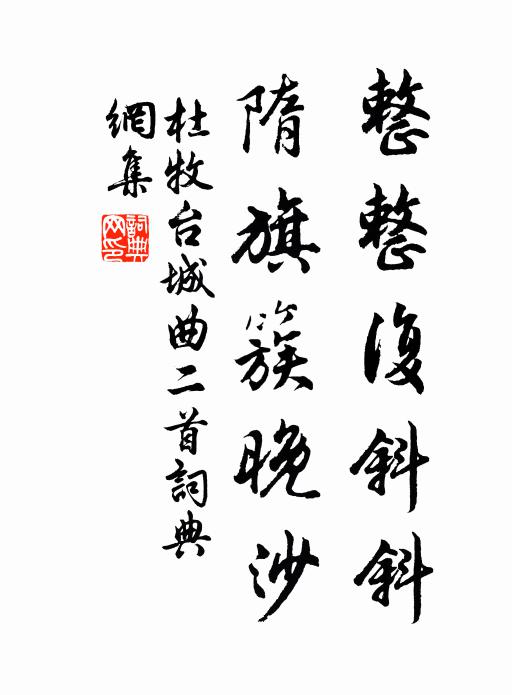 整整復斜斜
隋旗簇晚沙
杜牧台城曲二首詞典
網集
詞典
网印